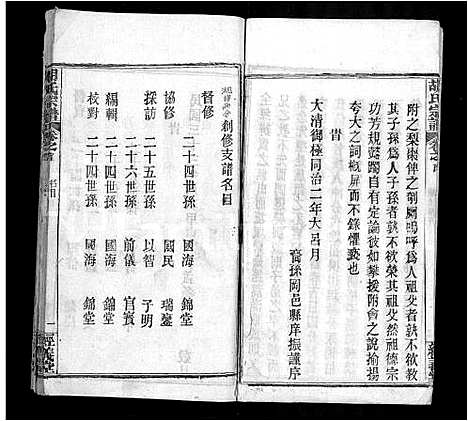 胡氏宗譜
附之梨棗俾之剞劂嗚呼爲人子孫者孰不欲敎
其子孫爲人子孫者孰不欲榮其祖父然祖德宗
功芳規懿躅自有定論彼如攀援附會之說揄揚
夸大之詞槪屏而不錄懼褻也
旹
大清御極同治二年大呂月
裔孫岡邑縣庠振謹序
創修支譜名目
督修 二十四世孫 國海 錦堂
協修 國民 瑞鑒
採訪 二十五世孫 以智 子明
二十六世孫 前儀 官賓
編輯 二十四世孫 國海 錦堂
校對 二十四世孫 國海 錦堂
胡氏宗譜
經義堂